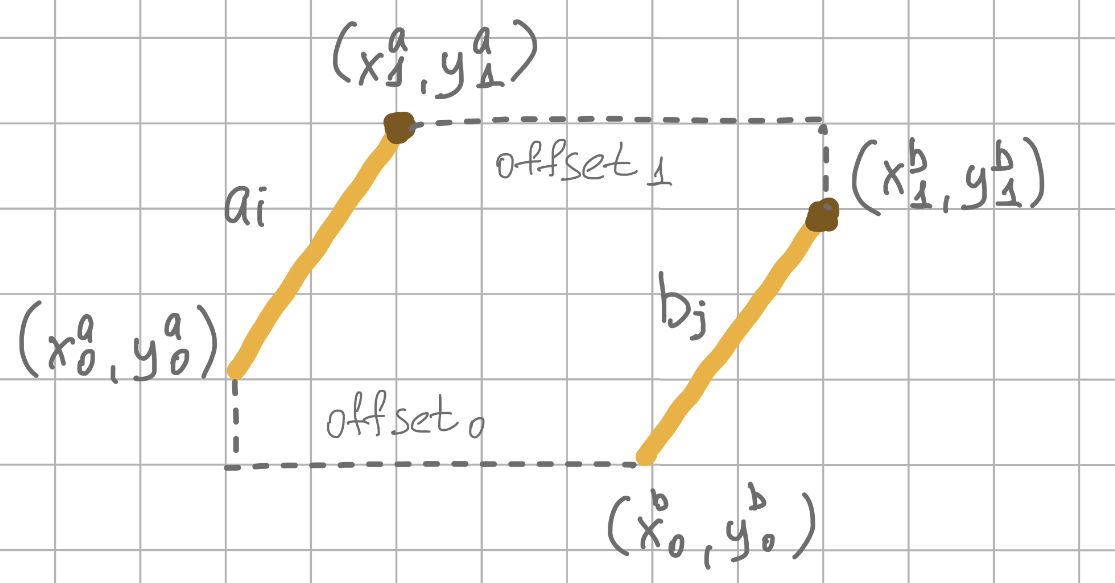 (x₁ᵃ, y₁ᵃ)
offset₁
(x₁ᵇ, y₁ᵇ)
ai
bj
(x₀ᵃ, y₀ᵃ)
offset₀
(x₀ᵇ, y₀ᵇ)